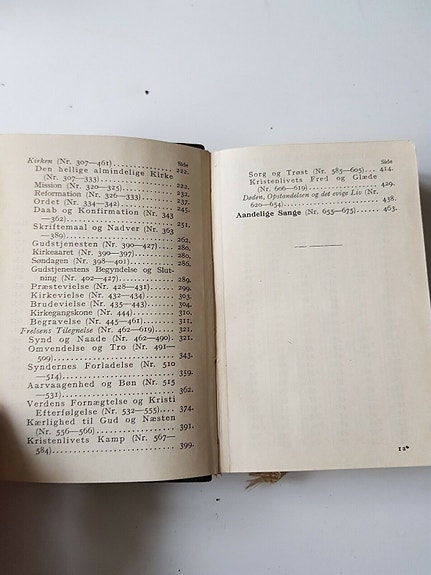 Kirken (Nr. 307—461) ............ Side 222.
Den hellige almindelige Kirke
(Nr. 307—333) ............ 222.
Mission (Nr. 320—325) ............ 232.
Reformation (Nr. 326—333) ........ 232.
Ordet (Nr. 334—342) ............ 237.
Daab og Konfirmation (Nr. 343
—362) ............ 245.
Skriftemaal og Nadver (Nr. 363
—389) ............ 251.
Gudstjenesten (Nr. 390—427) ...... 262.
Kirkeaaret (Nr. 390—397) ........ 280.
Søndagen (Nr. 398—401) .......... 286.
Gudstjenestens Begyndelse og Slut-
ning (Nr. 402—427) ............ 289.
Præstevielse (Nr. 428—431) ........ 299.
Kirkevielse (Nr. 432—434) ........ 303.
Brudevielse (Nr. 435—443) ........ 304.
Kirkegangskone (Nr. 444) ........ 310.
Begravelse (Nr. 445—461) ........ 311.
Frelsens Tilegnelse (Nr. 462—619) .. 321.
Synd og Naade (Nr. 462—490) .. 321.
Omvendelse og Tro (Nr. 491—
509) ............ 343.
Syndernes Forladelse (Nr. 510
—514) ............ 359.
Aarvaagenhed og Bøn (Nr. 515
—531) ............ 362.
Verdens Fornægtelse og Kristi
Efterfølgelse (Nr. 532—555) .... 374.
Kærlighed til Gud og Næsten
(Nr. 556—566) ............ 391.
Kristenlivets Kamp (Nr. 567—
584) ............ 399.
Side
Sorg og Trøst (Nr. 585—605) .. 414.
Kristenlivets Fred og Glæde
(Nr. 606—619) ............ 429.
Døden, Opstandelsen og det evige Liv (Nr.
620—654) ............ 438.
Aandelige Sange (Nr. 655—675) .... 463.
12*